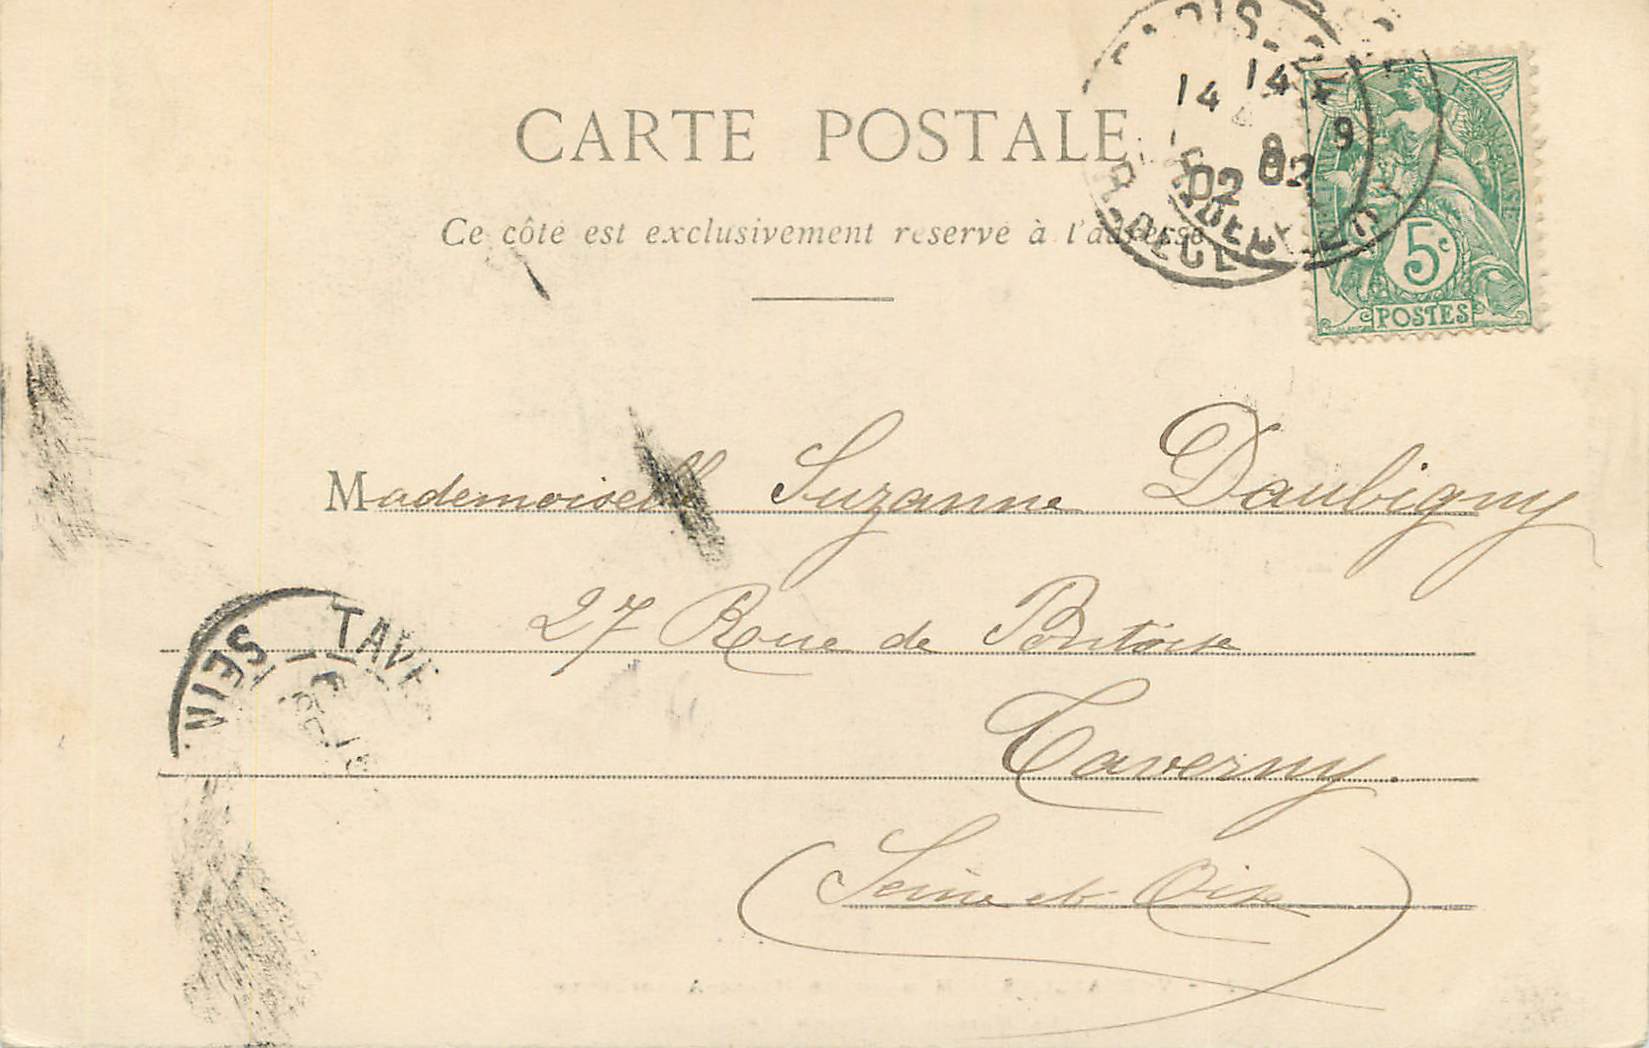 CARTE POSTALE
Ce côté est exclusivement réservé à l'adresse
PARIS
14 14
02 02
R. DE CLERY
5c
POSTES
Mademoiselle Suzanne Daubigny
27 Rue de Pontoise
Taverny.
(Seine et Oise)
TAVE
SEIN